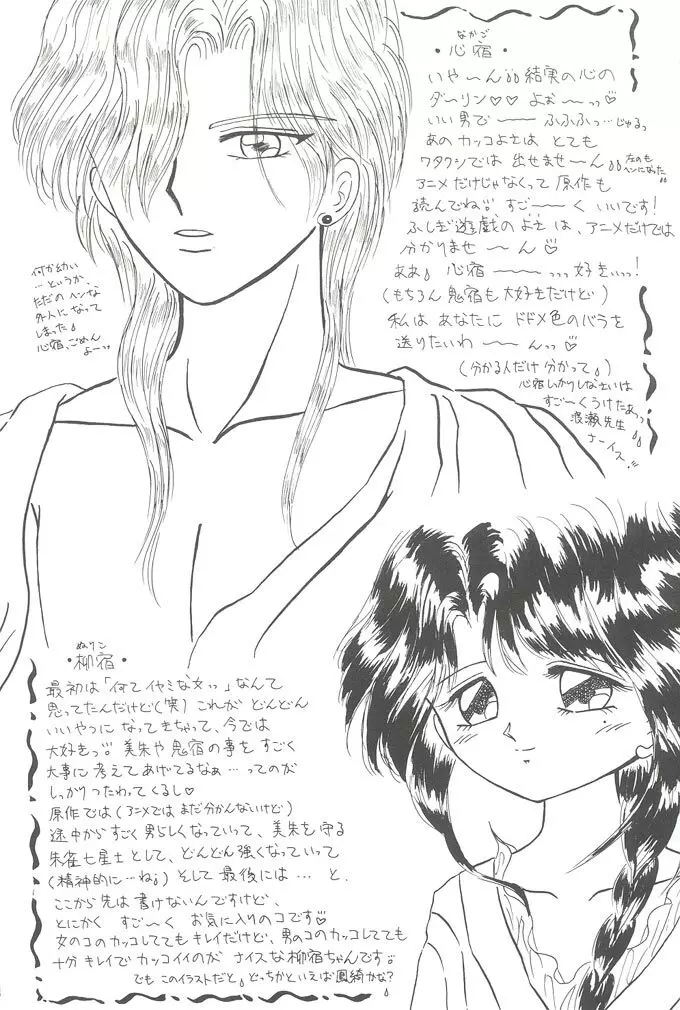 なかご
・心宿・
いや〜ん♡ 結実の心の
ダーリン♡♡ よぉ〜〜っ♡
いい男で〜〜 ふふふっ…じゅるっ
あのカッコよさは とても
ワタクシでは 出せませ〜ん
左のも
ヘンになった
アニメだけじゃなくって 原作も
読んでね すご〜〜く いいです!
ふしぎ遊戯のよさは、アニメだけでは
分かりませ 〜ん♡
ああ 心宿〜〜〜っっ好きぃっ!
(もちろん 鬼宿も大好きだけど)
私は あなたに ドドメ色のバラを
送りたいわ 〜〜んっっ♡
(分かる人だけ 分かって)
心宿しかりしなさいは
すご〜くうけたぁっ
浪瀬先生
ナーイス!!
何か幼い
…というか、
ただのヘンな
外人になって
しまった
心宿、ごめん
よーっ
ぬりこ
・柳宿・
最初は「何てイヤミな女っ」なんて
思ってたんだけど(笑) これが どんどん
いいやつに なってきちゃって、今では
大好きっ 美朱や 鬼宿の事を すごく
大事に 考えてあげてるなぁ…ってのが
しっかりつたわってくるし♡
原作では(アニメでは まだ分かんないけど)
途中からすごく男らしくなっていって、美朱を守る
朱雀七星士として、どんどん強くなっていって
(精神的に…ね) そして 最後には … と、
ここから先は 書けないんですけど、
とにかく すご〜く お気に入りのコです♡
女のコのカッコしててもキレイだけど、男のコのカッコしてても
十分キレイで カッコイイのが ナイスな柳宿ちゃんです
でも このイラストだと、どっちかといえば鳳綺かな?